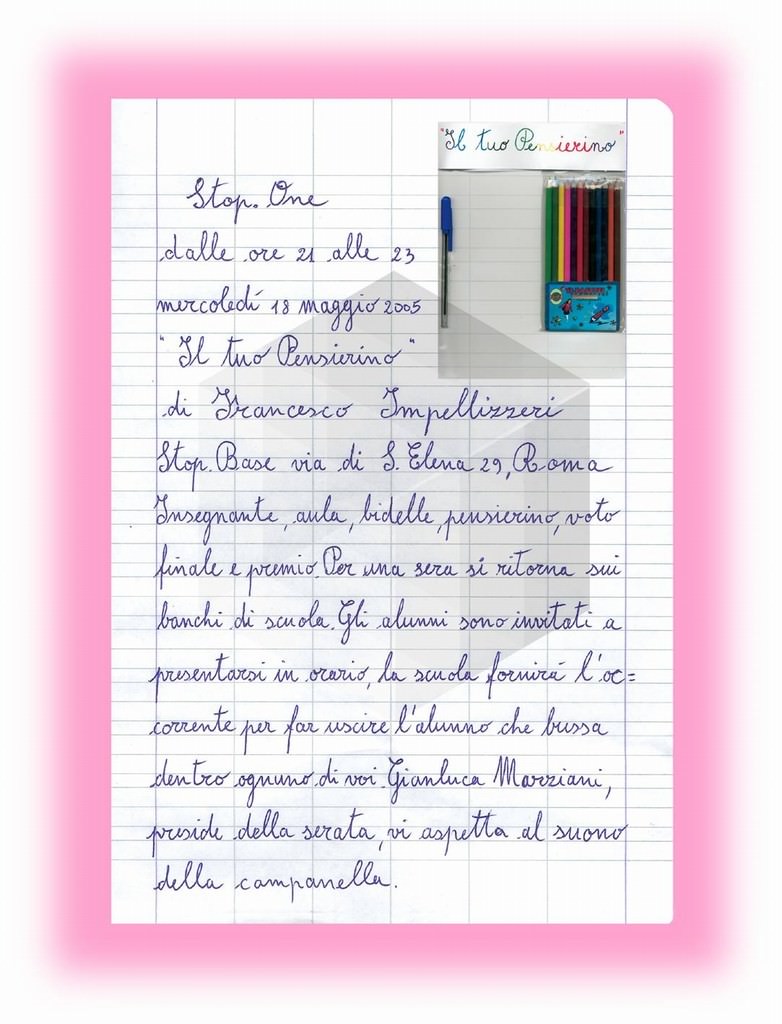 "Il tuo Pensierino"
Stop. One
dalle ore 21 alle 23
mercoledí 18 maggio 2005
"Il tuo Pensierino"
di Francesco Impellizzeri
Stop. Base via di S. Elena 29, Roma
Insegnante, aula, bidelle, pensierino, voto
finale e premio. Per una sera si ritorna sui
banchi di scuola. Gli alunni sono invitati a
presentarsi in orario, la scuola fornirá l'oc=
corrente per far uscire l'alunno che bussa
dentro ognuno di voi. Gianluca Marziani,
preside della serata, vi aspetta al suono
della campanella.